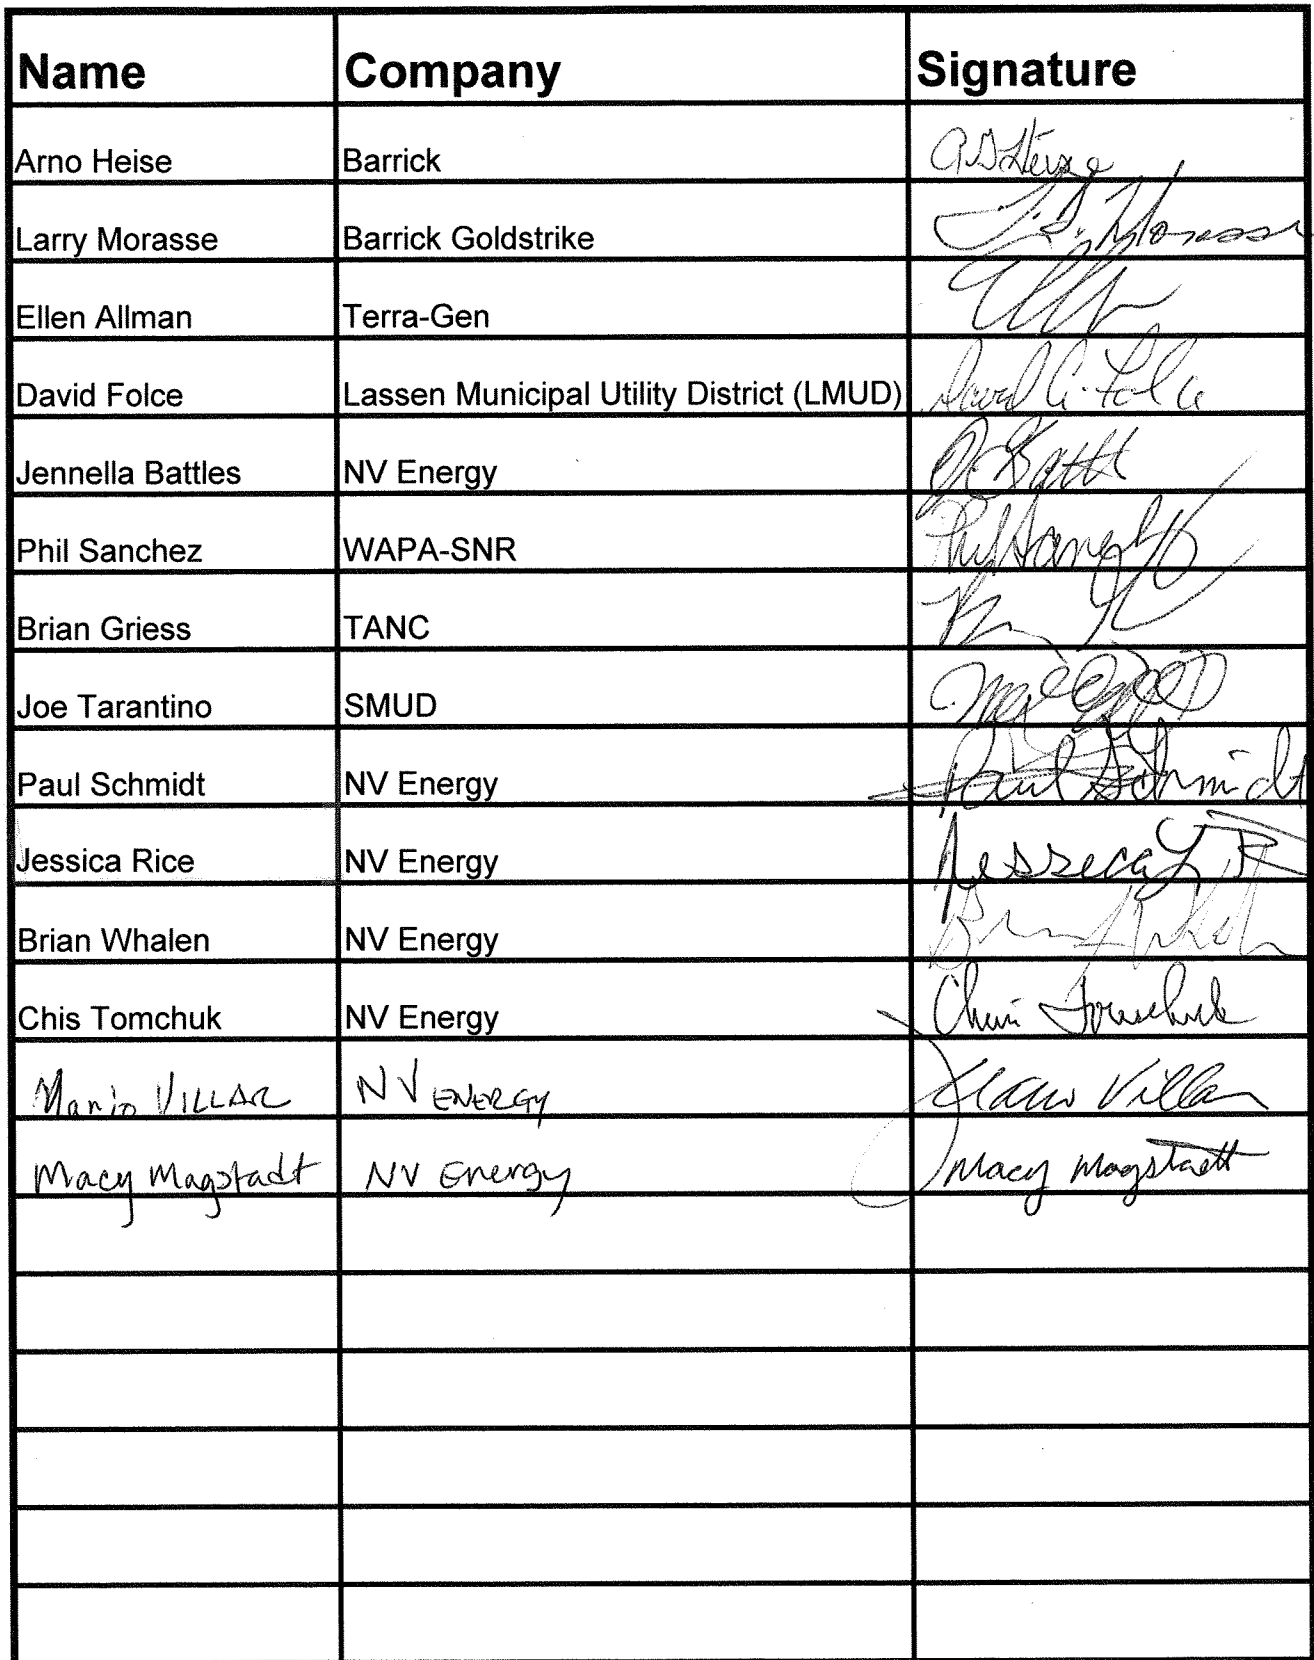 Name Company Signature
Arno Heise Barrick A D Heise
Larry Morasse Barrick Goldstrike L. D. Morasse
Ellen Allman Terra-Gen
David Folce Lassen Municipal Utility District (LMUD) David C. Folce
Jennella Battles NV Energy
Phil Sanchez WAPA-SNR Phil Sanchez
Brian Griess TANC
Joe Tarantino SMUD
Paul Schmidt NV Energy Paul Schmidt
Jessica Rice NV Energy
Brian Whalen NV Energy
Chis Tomchuk NV Energy Chris Tomchuk
Mario VILLAR NV ENERGY Mario Villar
Macy Magstadt NV Energy Macy Magstadt